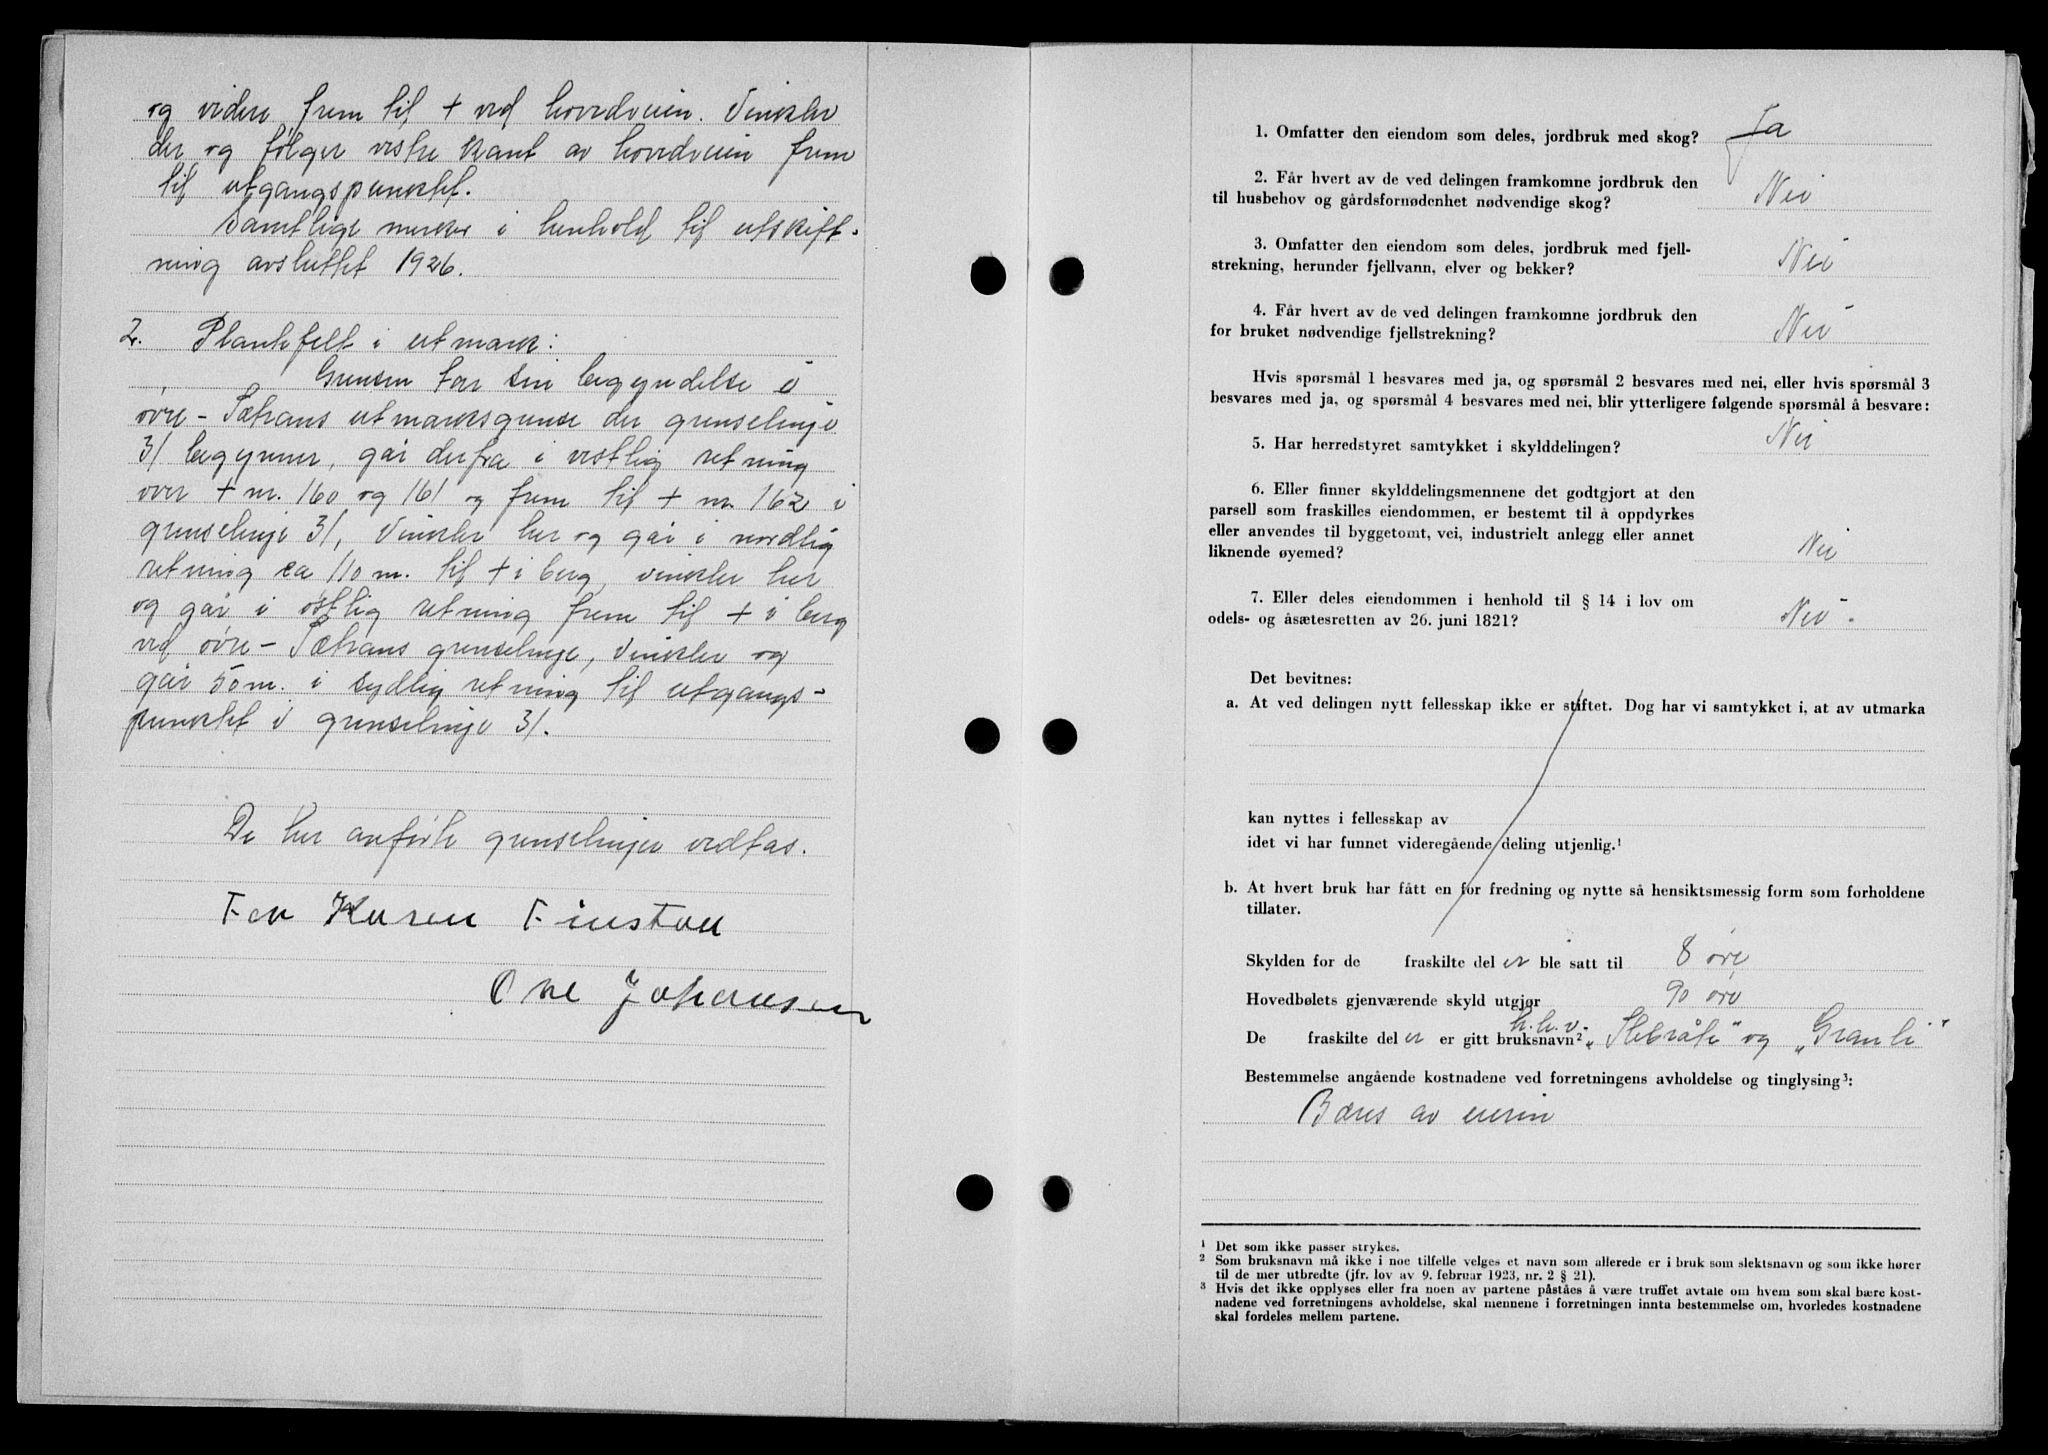 og videre frem til + ved hovedveien. Vinkler
der og følger vestre kant av hovedveien frem
til utgangspunktet.
Samtlige merker i henhold til utskift-
ning avsluttet 1926.
2. Plantefelt i utmark:
Grensen tar sin begyndelse i
øvre - Sætrans utmarksgrense der grenselinje
31 begynner, går derfra i vestlig retning
over + nr. 160 og 161 og frem til + nr. 162 i
grenselinje 31, Vinkler her og går i nordlig
retning ca 110 m. til + i berg, vinkler her
og går i østlig retning frem til + i berg
ved øvre - Sætrans grenselinje, Vinkler og
går 50 m. i sydlig retning til utgangs-
punktet i grenselinje 31.
De her anførte grenselinjer vedtas.
For Karen Finstad
Ove Johansen
1. Omfatter den eiendom som deles, jordbruk med skog? Ja
2. Får hvert av de ved delingen framkomne jordbruk den
til husbehov og gårdsfornødenhet nødvendige skog? Nei
3. Omfatter den eiendom som deles, jordbruk med fjell-
strekning, herunder fjellvann, elver og bekker? Nei
4. Får hvert av de ved delingen framkomne jordbruk den
for bruket nødvendige fjellstrekning? Nei
Hvis spørsmål 1 besvares med ja, og spørsmål 2 besvares med nei, eller hvis spørsmål 3
besvares med ja, og spørsmål 4 besvares med nei, blir ytterligere følgende spørsmål å besvare:
5. Har herredstyret samtykket i skylddelingen? Nei
6. Eller finner skylddelingsmennene det godtgjort at den
parsell som fraskilles eiendommen, er bestemt til å oppdyrkes
eller anvendes til byggetomt, vei, industrielt anlegg eller annet
liknende øyemed? Nei
7. Eller deles eiendommen i henhold til § 14 i lov om
odels- og åsætesretten av 26. juni 1821? Nei -
Det bevitnes:
a. At ved delingen nytt fellesskap ikke er stiftet. Dog har vi samtykket i, at av utmarka
kan nyttes i fellesskap av
idet vi har funnet videregående deling utjenlig.¹
b. At hvert bruk har fått en for fredning og nytte så hensiktsmessig form som forholdene
tillater.
Skylden for de fraskilte del er ble satt til 8 øre
Hovedbølets gjenværende skyld utgjør 90 øre
h.h.v.
De fraskilte del er er gitt bruksnavn² „Stebråte" og „Granli"
Bestemmelse angående kostnadene ved forretningens avholdelse og tinglysing³:
Bæres av eieren
¹ Det som ikke passer strykes.
² Som bruksnavn må ikke i noe tilfelle velges et navn som allerede er i bruk som slektsnavn og som ikke hører
til de mer utbredte (jfr. lov av 9. februar 1923, nr. 2 § 21).
³ Hvis det ikke opplyses eller fra noen av partene påståes å være truffet avtale om hvem som skal bære kost-
nadene ved forretningens avholdelse, skal mennene i forretningen innta bestemmelse om, hvorledes kostnadene
skal fordeles mellem partene.